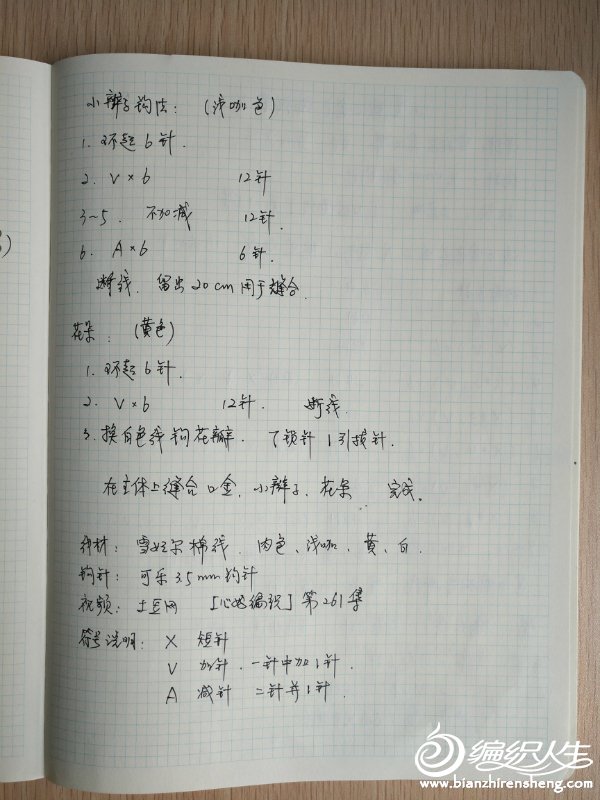 小辫子钩法：（浅咖色）
1. 环起6针.
2. V×6 12针
3~5. 不加减 12针.
6. A×6 6针.
断线. 留出20cm用于缝合.
花朵：（黄色）
1. 环起6针.
2. V×6 12针. 断线.
3. 换白色线钩花瓣. 7锁针 1引拔针.
在主体上缝合口金、小辫子、花朵 完成.
线材：雪妃尔棉线. 肉色、浅咖、黄、白.
钩针：可乐3.5mm钩针
视频：土豆网 [心姐编织]第261集
符号说明：X 短针
V 加针. 一针中加1针.
A 减针 二针并1针.
编织人生
www.bianzhirensheng.com